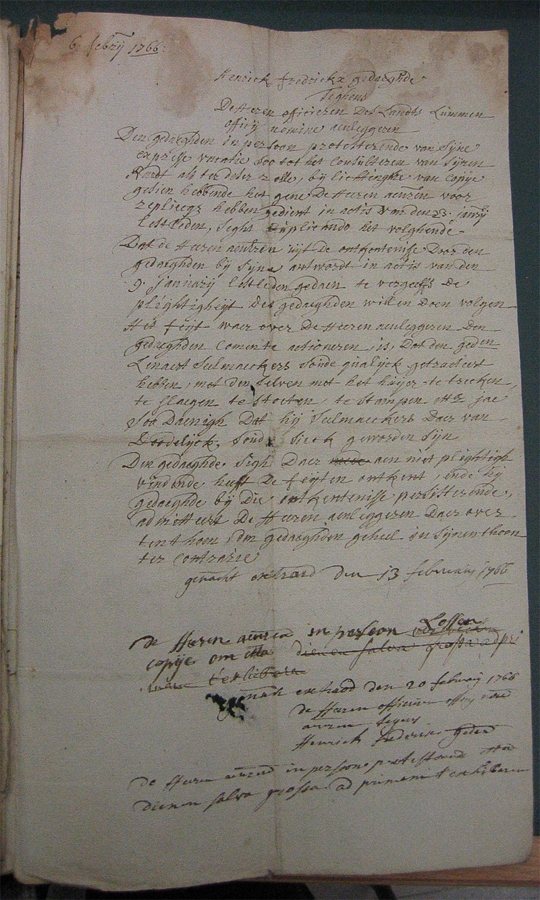 6 febrij 1766
Henrick fredrickx gedaeghde
Teghens
De Heren officieren des Landts Lummen
officij nomine aenleggeren
Den gedaeghden in persoon protesterende van syne
expresse vacatie soo tot het consulteren van synen
Raedt als ter deser rolle, bij lichtinghe van copije
gesien hebbende het gene de Heeren aenren voor
replieque hebben gedient in actis van den 23 janrij
lestleden, seght dupliciendo het volghende
Dat de Heeren aenren uijt de ontkentenisse door den
gedaeghden bij syne antwordt in actis van den
9 januarij lestleden gedaen te vergeefs de
plightigheijt des gedaeghden willen doen volgen
Het feijt waer over de Heeren aenleggeren den
gedaeghden comen te actioneren, is, dat den geden
Linaert Selmaeckers soude qualijck getracteert
hebben, met den selven met het haijer te trecken,
te slaegen te stooten, te stampen etc jae
soo daenigh dat hij Selmaeckers daer van
doodelijck soude sieck geworden syn
Den gedaeghde sigh daer aen niet plightigh
vindende heeft de feijten ontkent, ende hij
gedaeghde bij die ontkentenisse persisterende,
admitteert de Heeren aenleggeren daer over
tenthoon den gedaeghden geheel in synen thoon
ter contrarie
genacht extraord den 13 februarij 1766
de Heeren aenren in persoon
copije om
genacht extraord den 20 februarij 1766
de Heeren officieren offij noe
aenren tegens
Henrick Fredericx geden
de Heeren aenren in persoon protesterend
dienen salva grossa ad primam t'exhiberen